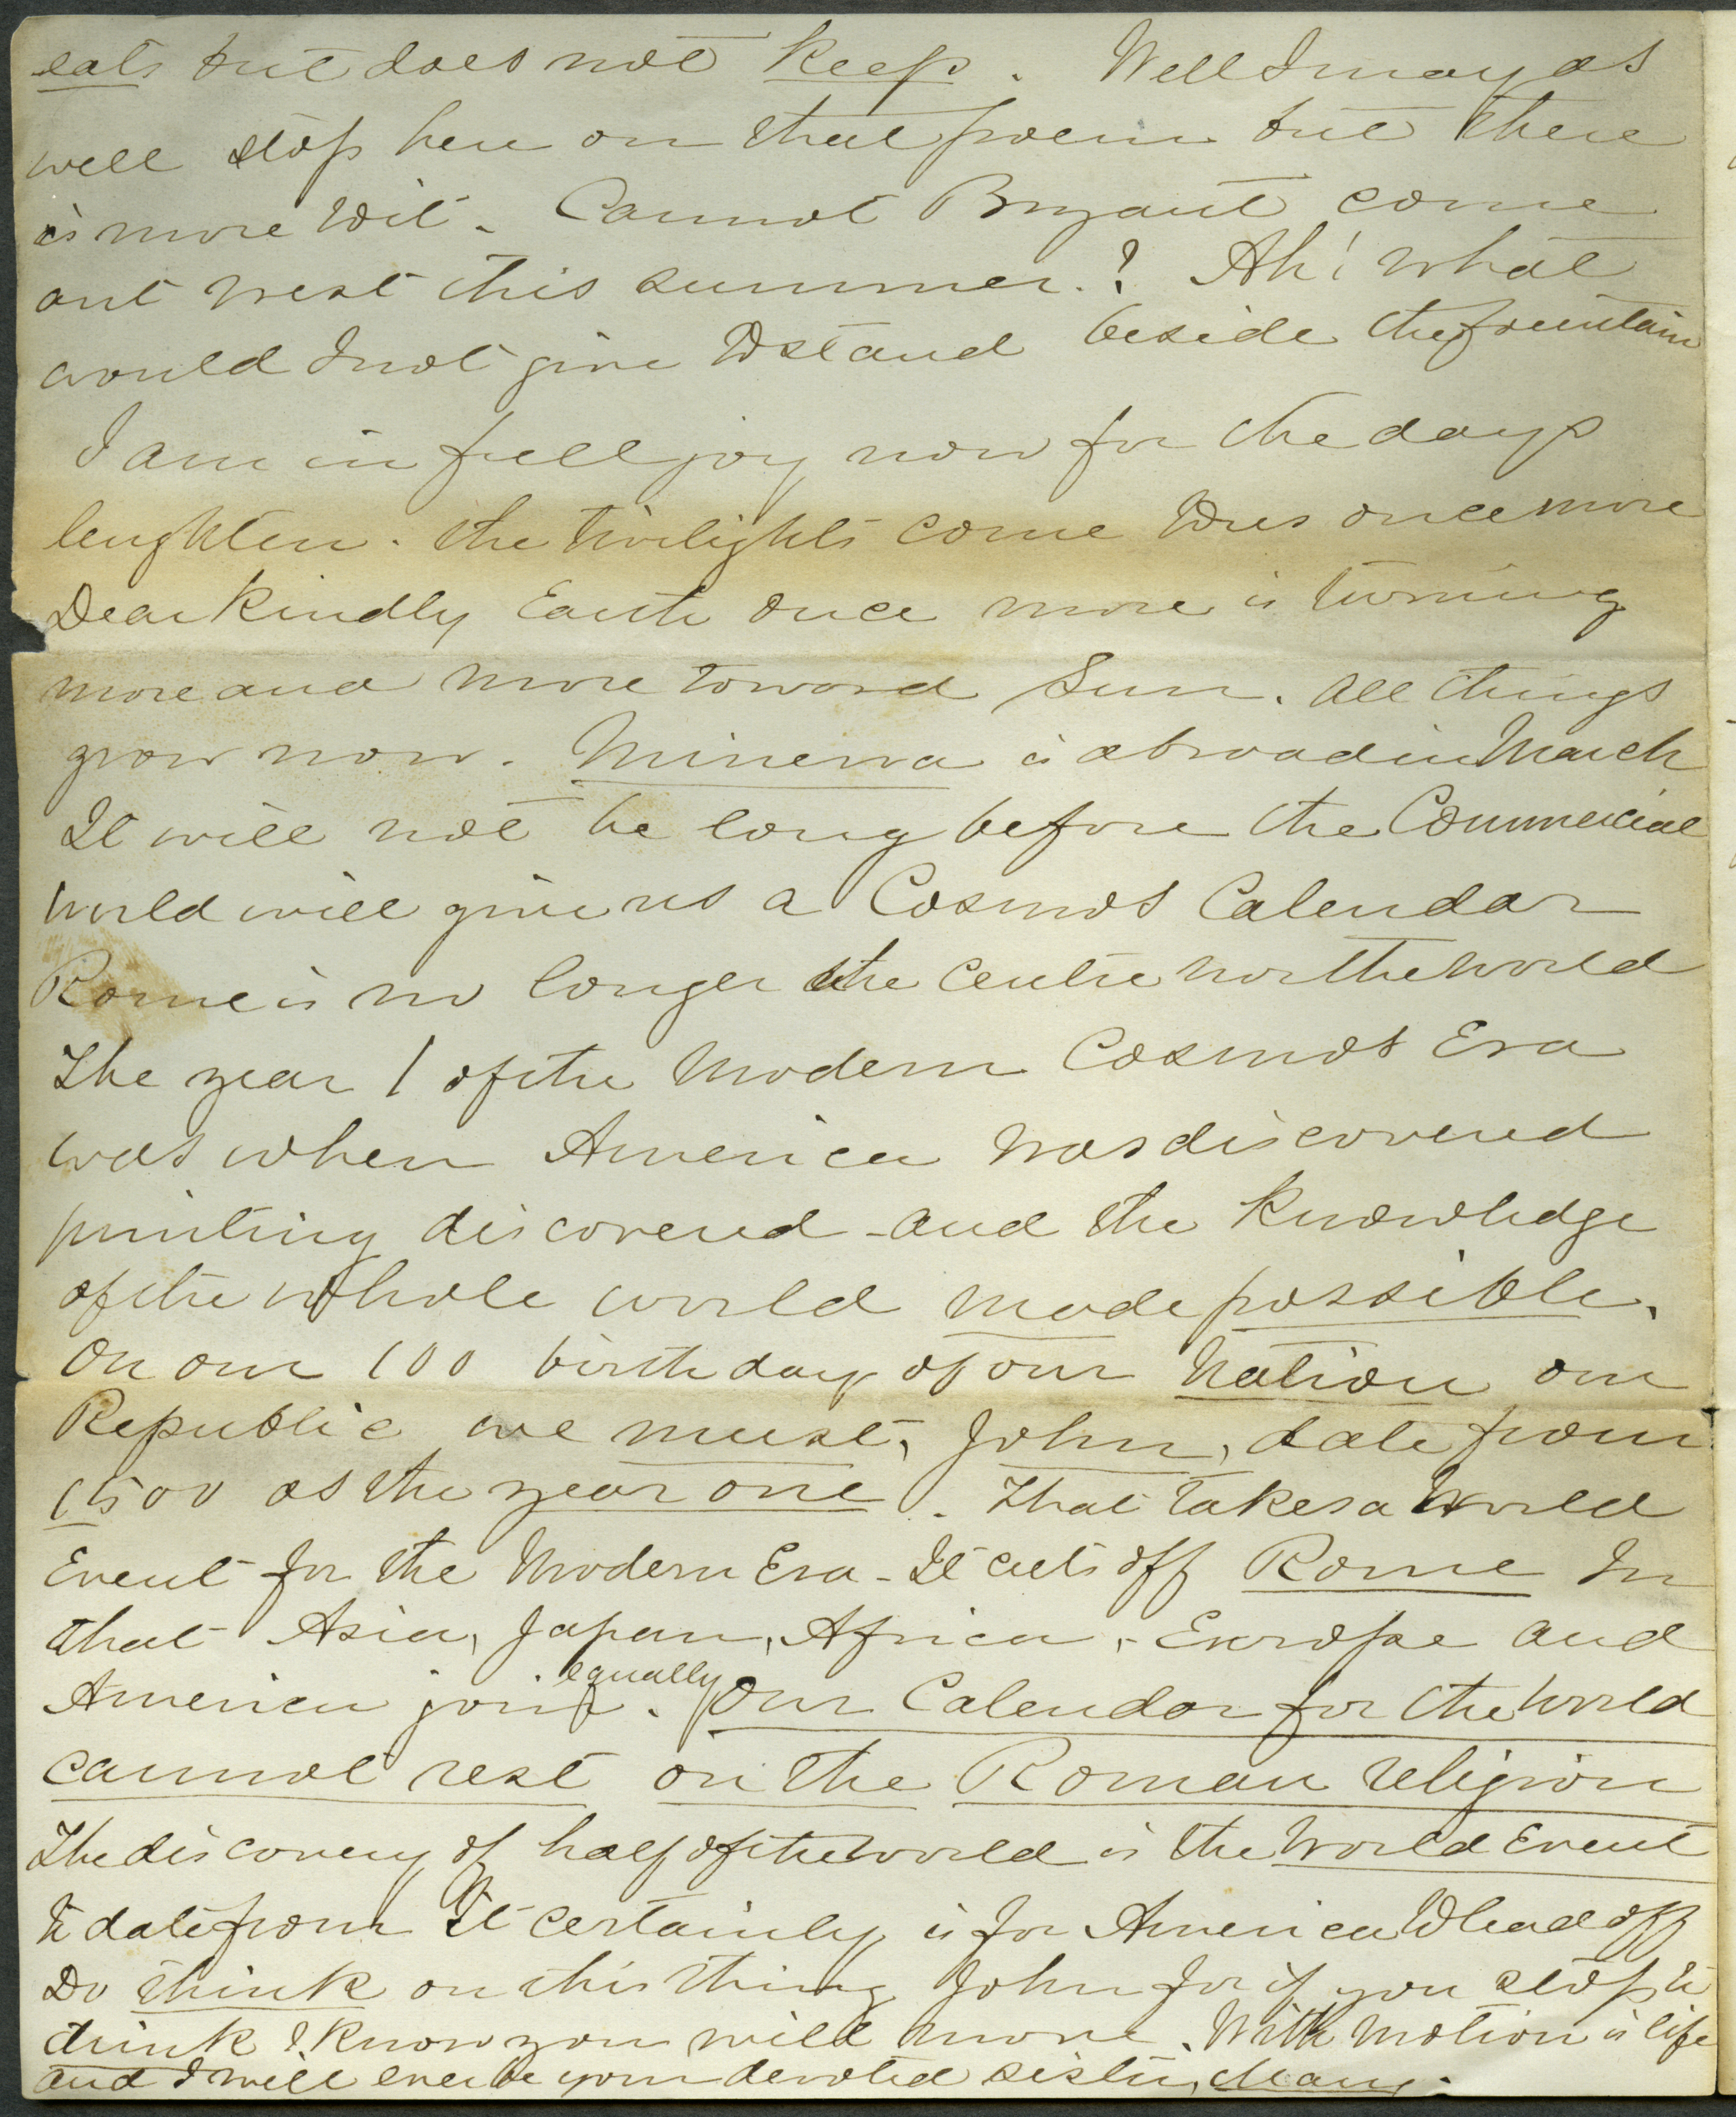 eats but does not keep. Well I may as
well stop here on that poem but there
is more wit. Cannot Bryant come
out west this summer.? Ah! What
would I not give to stand beside the fountain
I am in full joy now for the days
lenghten. The twilights come to us once more
Dear kindly Earth once more is turning
more and more toward Sun. All things
grow now. Minerva is abroad in March
It will not be long before the Commercial
World will give us a Cosmos Calendar
Rome is no longer the centre nor the world
The year 1 of the Modern Cosmos Era
was when America was discovered
printing discovered - and the knowledge
of the whole world made possible.
On our 100 birthday of our Nation our
Republic we must, John, date from
1500 as the year one. That takes a World
Event for the Modern Era - It cuts off Rome In
that Asia, Japan, Africa, - Europe and
America join equally. Our Calendar for the World
cannot rest on the Roman religion
The discovery of half of the world is the World Event
to date from It certainly is for America to lead off
Do think on this thing John for if you stop to
think I know you will move. With motion is life
and I will ever be your devoted sister, Mary.